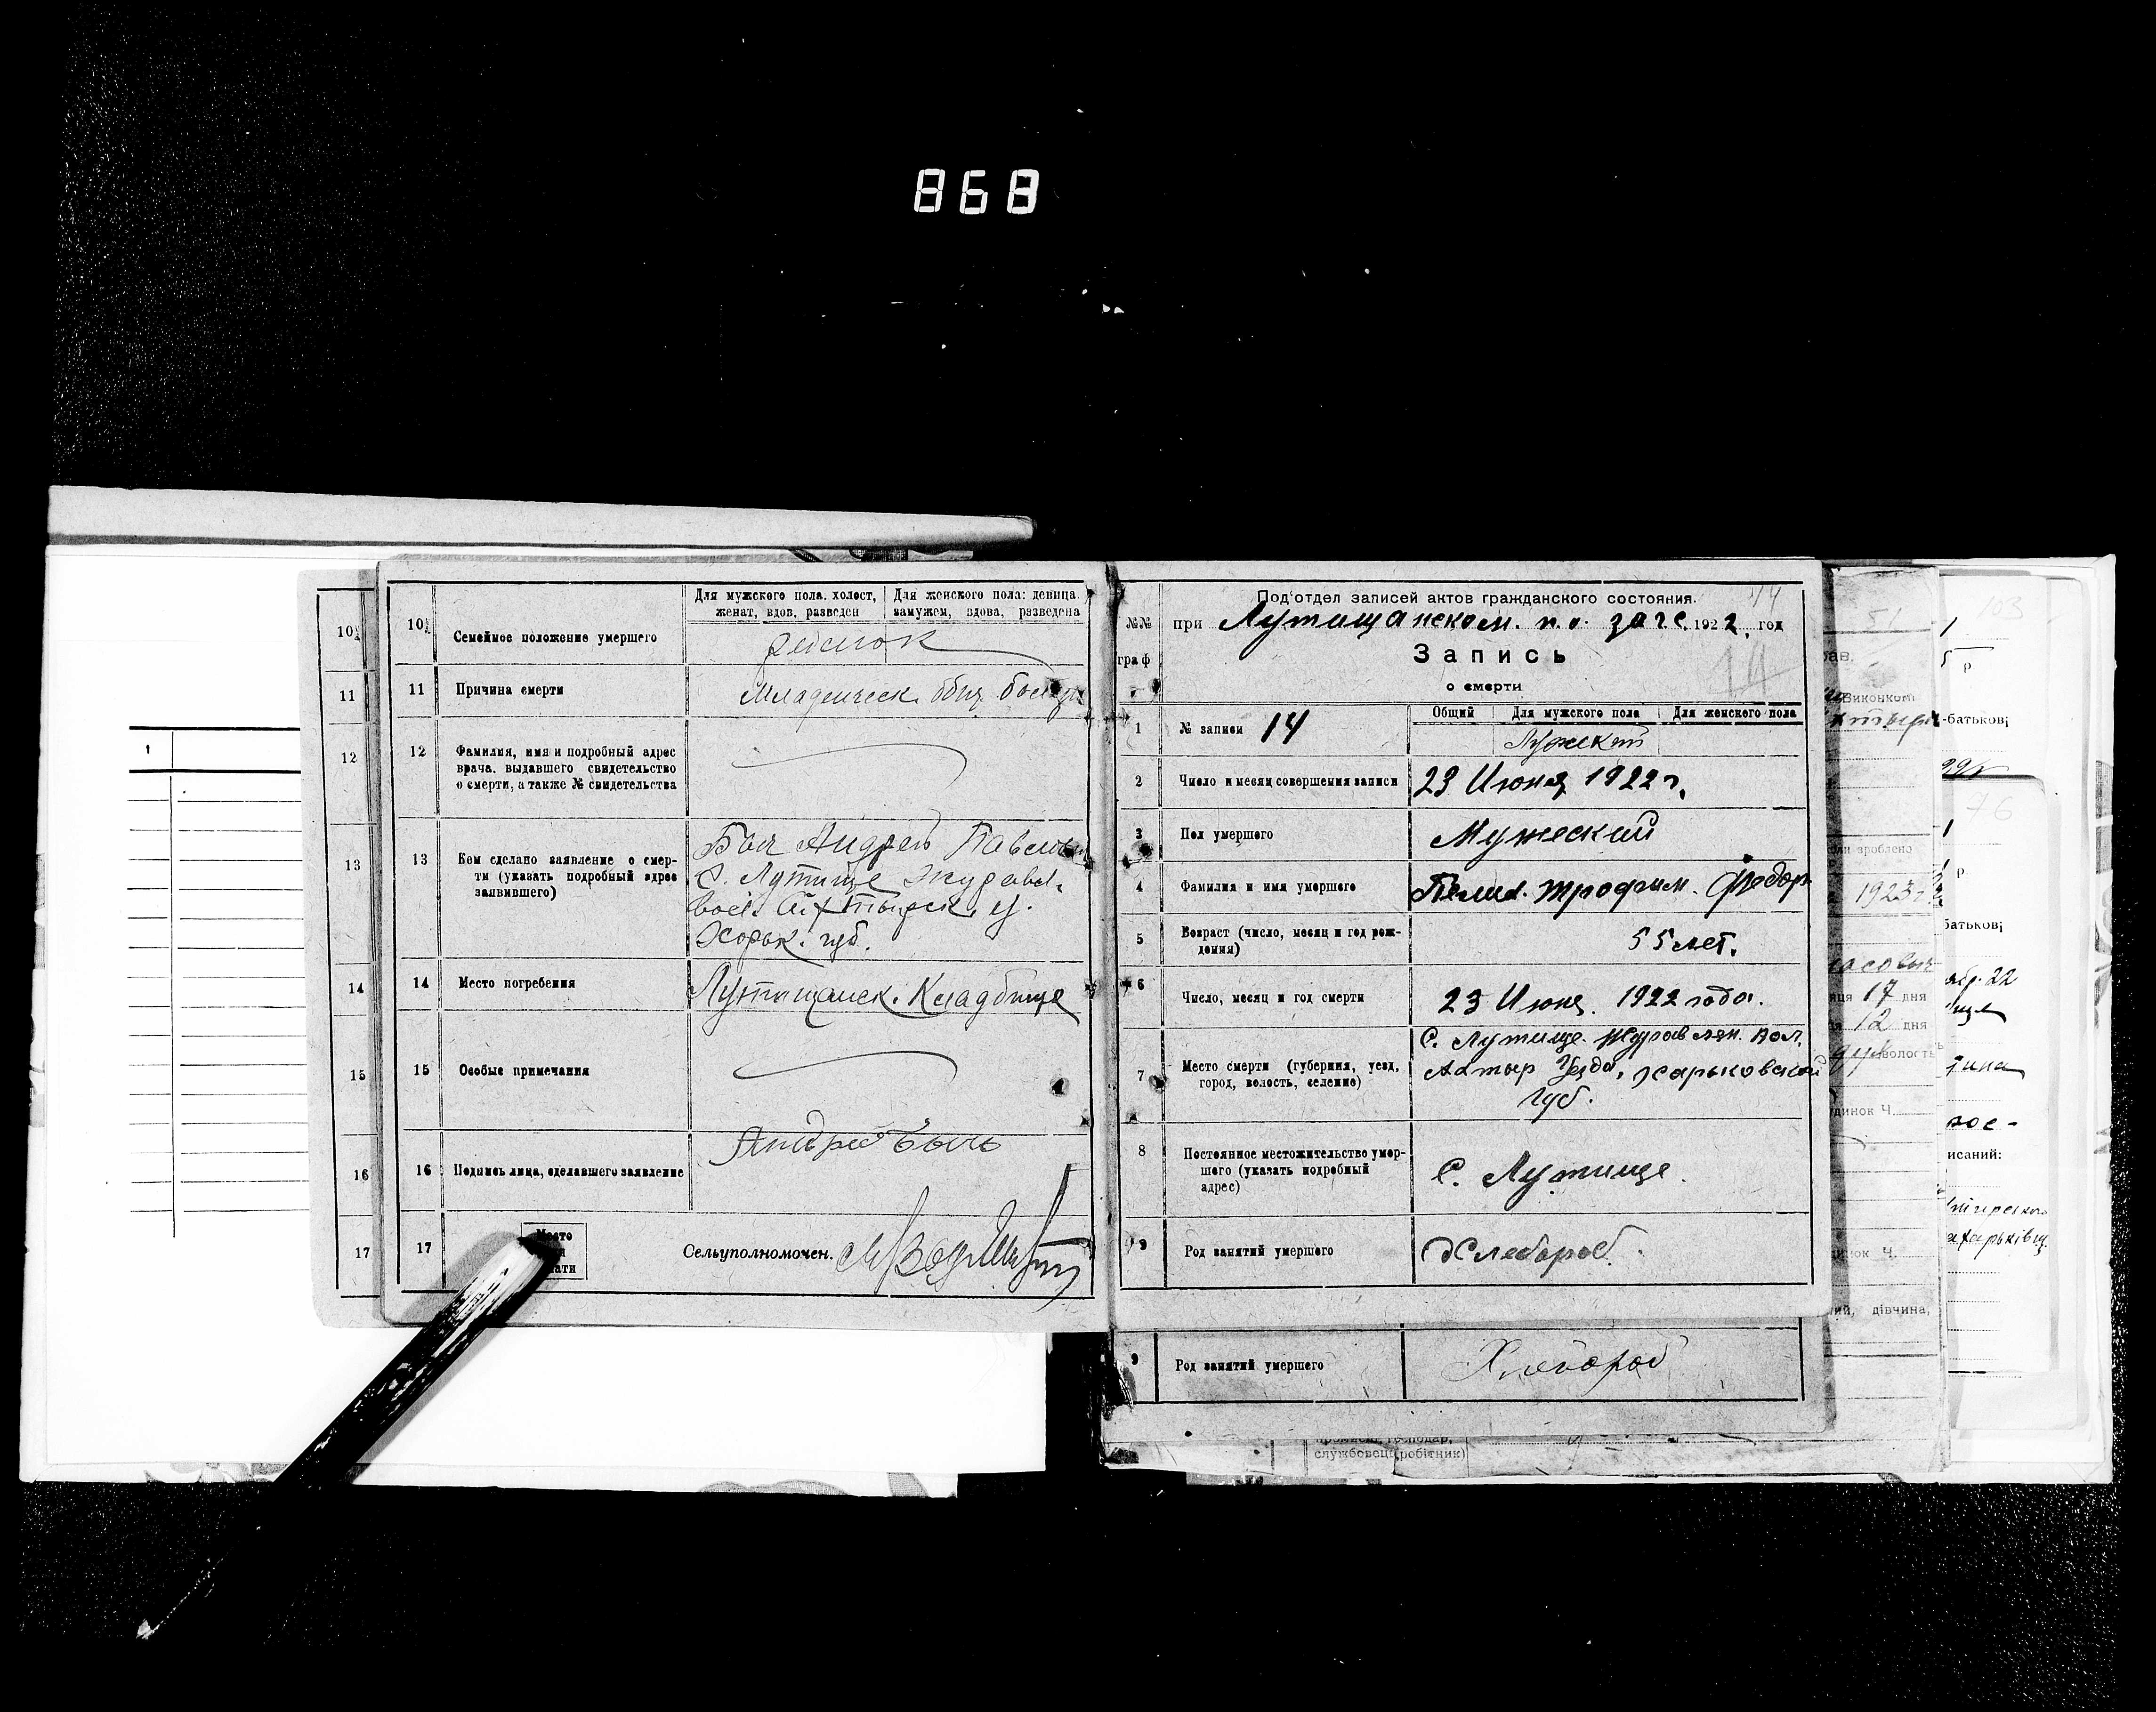 868
1
10½
11
12
13
14
15
16
17
10½
Семейное положение умершего
Для мужского пола. холост,
женат, вдов, разведен
Для женского пола: девица.
замужем, вдова, разведена
11
Причина смерти
Младенческ.
12
Фамилия, имя и подробный адрес
врача. выдавшего свидетельство
о смерти, а также № свидетельства
13
Кем сделано заявление о смер-
ти (указать подробный адрес
заявившего)
Андрей Павлов
с. Лутище Журавл.
вол. Ахтырск. у.
Харьк. губ.
14
Место погребения
Лутищанск. Кладбище
15
Особые примечания
16
Подпись лица, сделавшего заявление
Андрей Быч
17
Место
Сельуполномочен.
Под‘отдел записей актов гражданского состояния.
№№
граф
при Лутищанском. п. о. загс, 1922, год
Запись
о смерти
14
1
№ записи 14
Общий
Для мужского пола
Для женского пола
Мужской
2
Число и месяц совершения записи
23 Июня 1922 г.
3
Пол умершего
Мужеский
4
Фамилия и имя умершего
Трофим. Федор
5
Возраст (число, месяц и год рож-
дения)
55 лет.
6
Число, месяц и год смерти
23 Июня. 1922 года.
7
Место смерти (губерния, уезд,
город, волость, селение)
С. Лутище. Журавлян. Вол.
Ахтыр Уезда, Харьковской
Губ.
8
Постоянное местожительство умер-
шего (указать подробный
адрес)
С. Лутище.
9
Род занятий умершего
Хлебороб.
9
Род занятий умершего
Хлебороб
службовец (робітник)
51
Виконком
-батькові
зроблено
1923
батькові
17 дня
12 дня
волость
динок Ч.
исаний:
динок Ч.
дівчина,
103
76